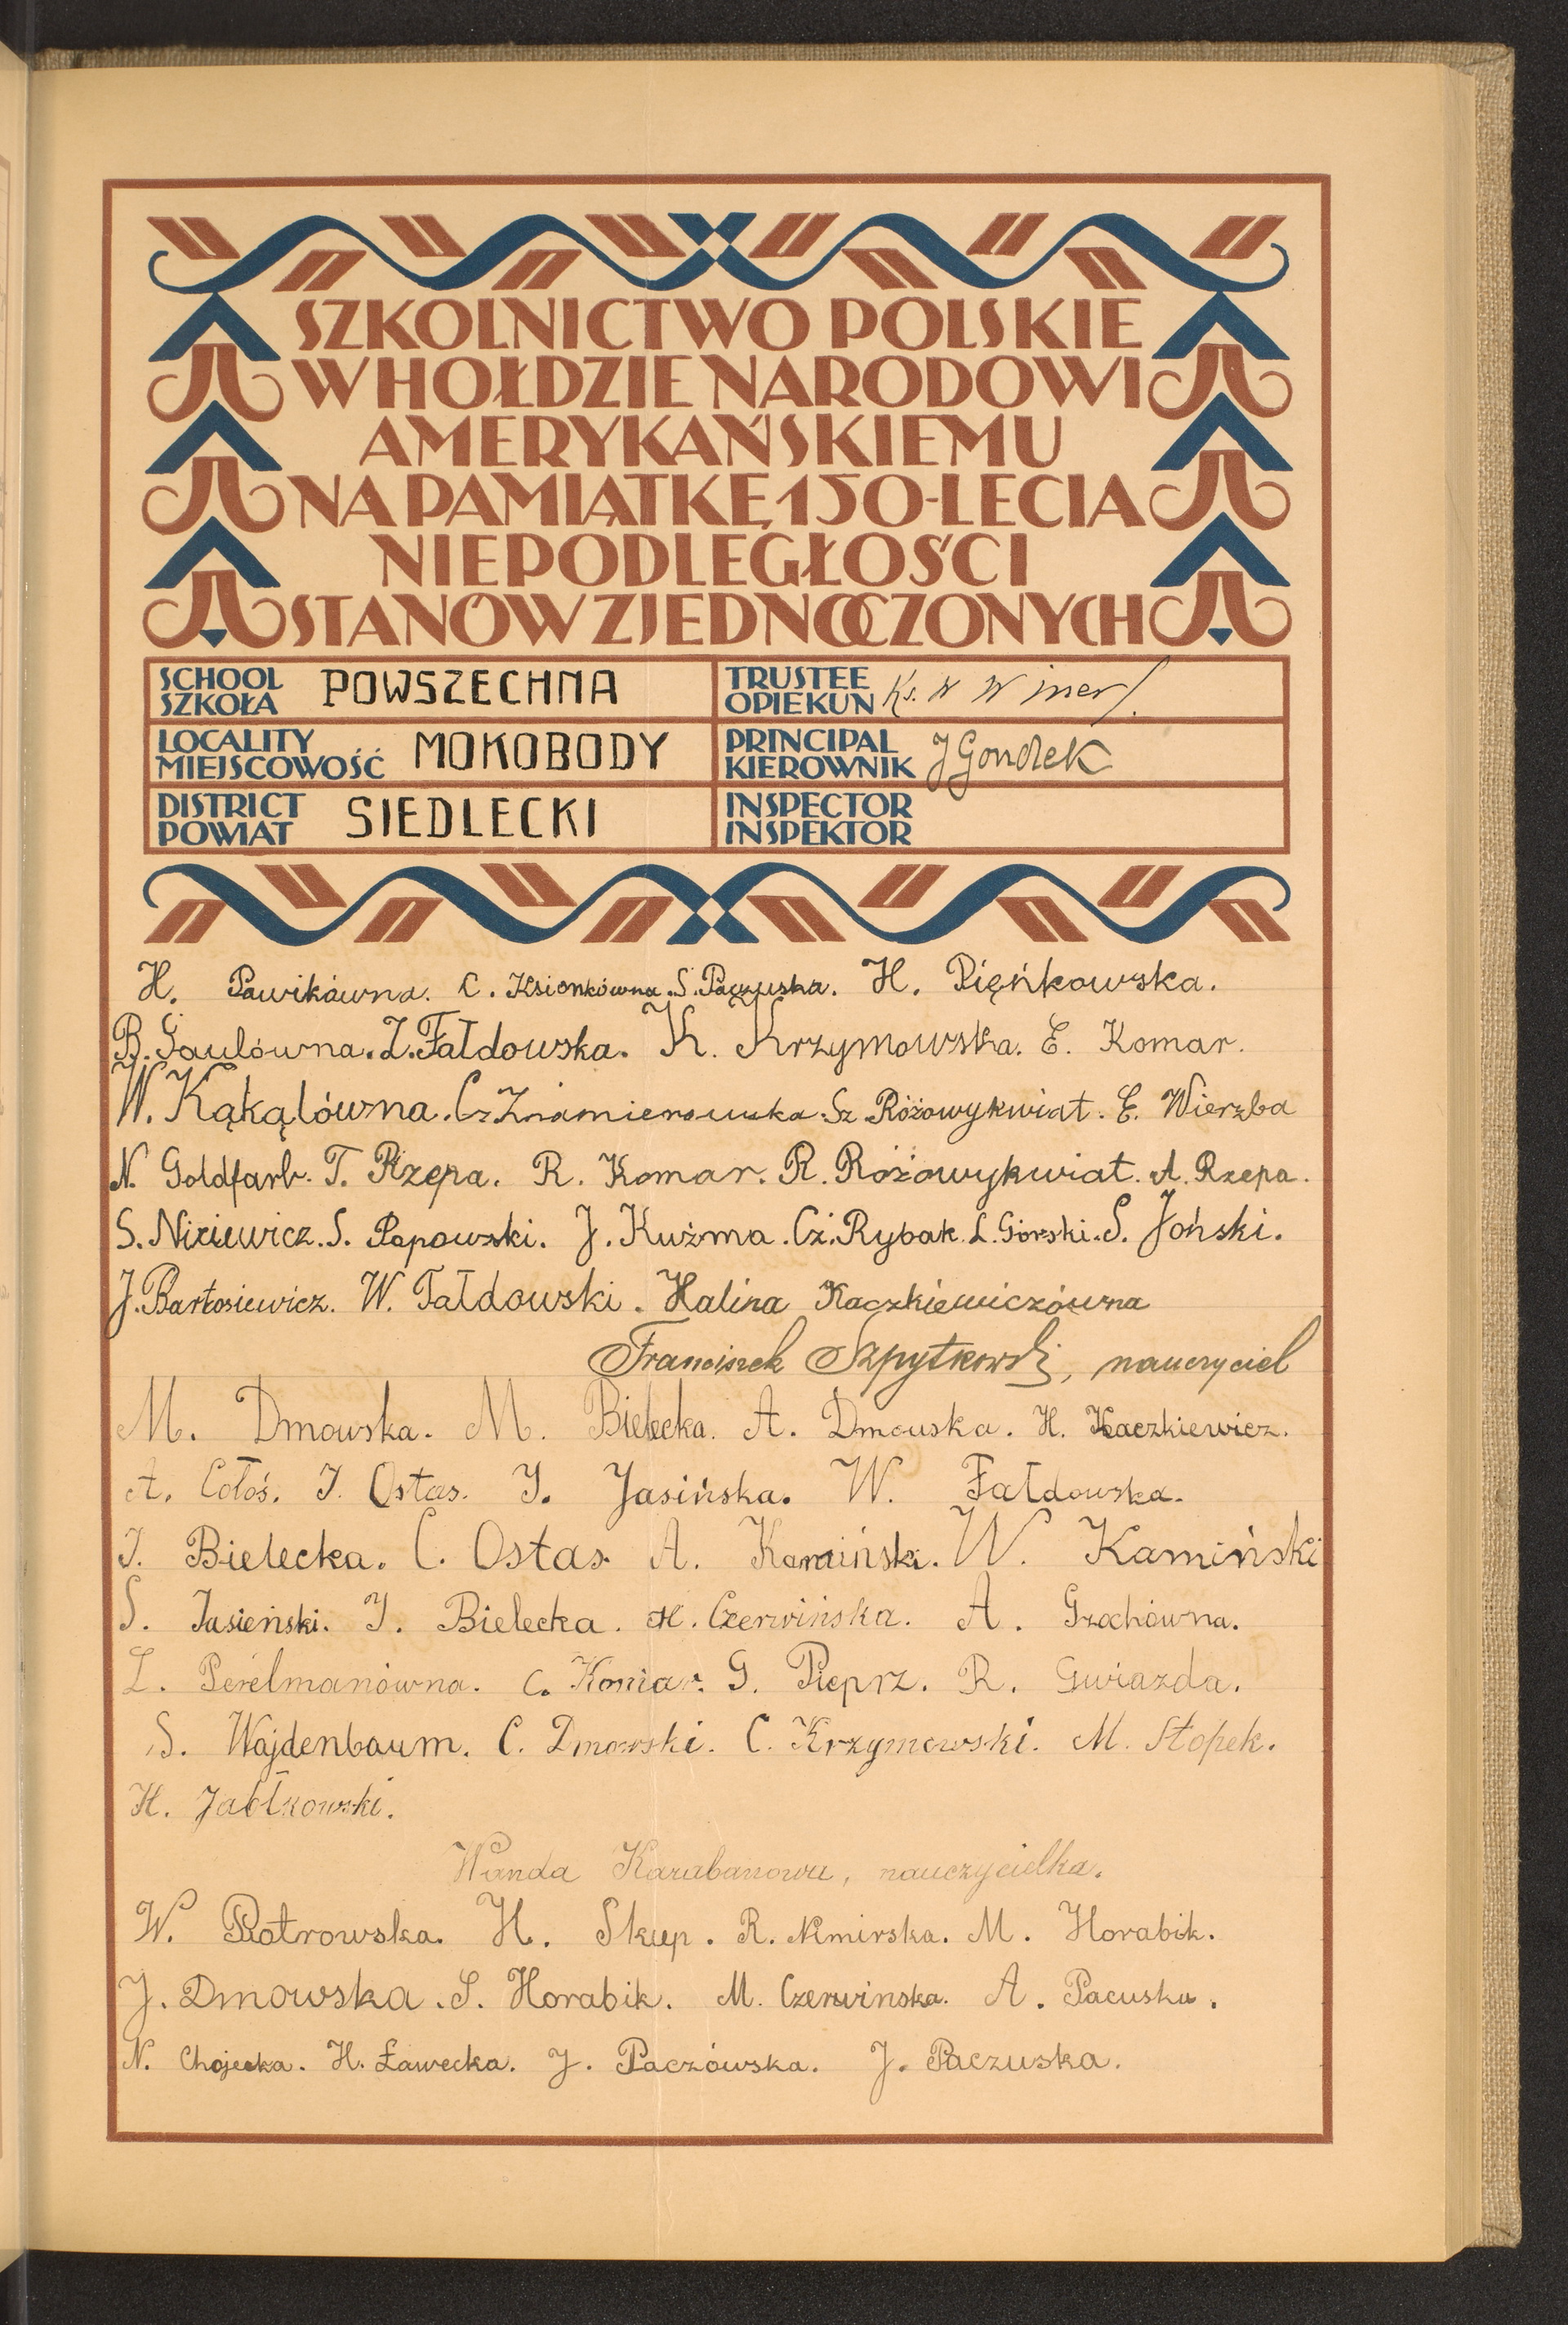 SZKOLNICTWO POLSKIE
W HOŁDZIE NARODOWI
AMERYKAŃSKIEMU
NA PAMIĄTKĘ 150-LECIA
NIEPODLEGŁOŚCI
STANÓW ZJEDNOCZONYCH
SCHOOL
SZKOŁA POWSZECHNA
TRUSTEE
OPIEKUN Ks. W
LOCALITY
MIEJSCOWOŚĆ MOKOBODY
PRINCIPAL
KIEROWNIK J Gondek
DISTRICT
POWIAT SIEDLECKI
INSPECTOR
INSPEKTOR
H. Pawikówna. C. Ksionkówna. S. Paczuska. H. Pięńkowska.
B. Gaulówna. Z. Fałdowska. K. Krzymowska. E. Komar.
W. Kąkąlówna. Cz Znamierowska. Sz Różowykwiat. E. Wierzba
N. Goldfarb. T. Rzepa. R. Komar. R. Różowykwiat. A. Rzepa.
S. Niciewicz. S. Papowski. J. Kuźma. Cz. Rybak. L. Górski. S. Joński.
J. Bartosiewicz. W. Fałdowski. Halina Kaczkiewiczówna
Franciszek Szpytkowski, nauczyciel
M. Dmowska. M. Bielecka. A. Dmouska. H. Kaczkiewicz.
A. Cołoś. J. Ostas. J. Jasińska. W. Fałdowska.
J. Bielecka. C. Ostas. A. Kamiński. W. Kamiński
S. Jasieński. J. Bielecka. H. Czerwińska. A. Grochówna.
L. Perelmanówna. C. Komar. G. Pieprz. R. Gwiazda.
S. Wajdenbaum. C. Dmowski. C. Krzymowski. M. Stopek.
H. Jabłkowski.
Wanda Karabanowa, nauczycielka.
W. Piotrowska. H. Skup. R. Nimirska. M. Horabik.
J. Dmowska. S. Horabik. M. Czerwinska. A. Pacuska.
N. Chojecka. H. Ławecka. J. Paczówska. J. Paczuska.